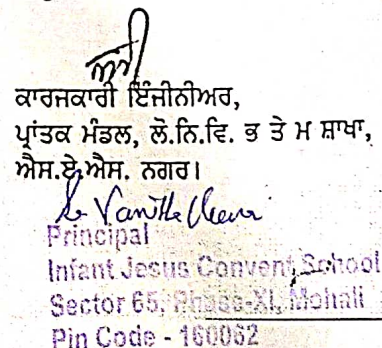 ਕਾਰਜਕਾਰੀ ਇੰਜੀਨੀਅਰ,
ਪ੍ਰਾਂਤਕ ਮੰਡਲ, ਲੋ.ਨਿ.ਵਿ. ਭ ਤੇ ਮ ਸ਼ਾਖਾ,
ਐਸ.ਏ.ਐਸ. ਨਗਰ।
Principal
Infant Jesus Convent School
Sector 65, Phase-XI, Mohali
Pin Code - 160062